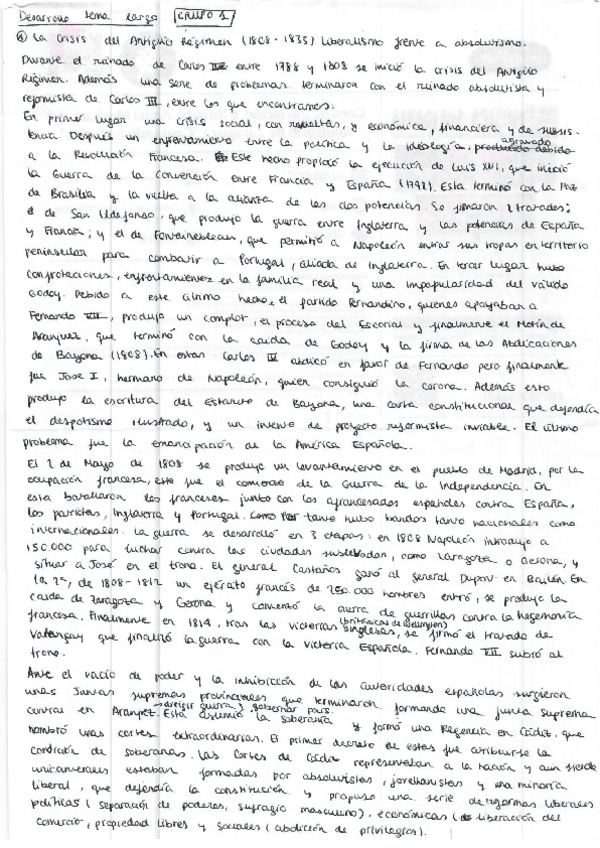 Desarrollo tema largo GRUPO 1
La Crisis del Antiguo Régimen (1808-1833) liberalismo frente a absolutismo.
Durante el reinado de Carlos IV entre 1788 y 1808 se inició la crisis del Antiguo
Régimen. Además una serie de problemas terminaron con el reinado absolutista y
reformista de Carlos III, entre los que encontramos:
En primer lugar una crisis social, con revueltas, y económica, financiera y de subsis-
tencia. Después un enfrentamiento entre la política y la ideología, agravado producido debido
a la Revolución Francesa. Este hecho propició la ejecución de Luis XVI, que inició
la Guerra de la Convención entre Francia y España (1792). Esta terminó con la Paz
de Brasilia y la vuelta a la alianza de las dos potencias. Se firmaron 2 tratados:
el de San Ildefonso, que produjo la guerra entre Inglaterra y las potencias de España
y Francia; y el de Fontainebleau, que permitió a Napoleón entrar sus tropas en territorio
peninsular para combatir a Portugal, aliada de Inglaterra. En tercer lugar hubo
confrotaciones, enfrentamientos en la familia real y una impopularidad del valido
Godoy. Debido a este último hecho, el partido Fernandino, quienes apoyaban a
Fernando VII, produjo un complot, el proceso del Escorial y finalmente el Motín de
Aranjuez, que terminó con la caída de Godoy y la firma de las Abdicaciones
de Bayona (1808). En estas Carlos IV abdicó en favor de Fernando pero finalmente
fue Jose I, hermano de Napoleón, quien consiguió la corona. Además esto
produjo la escritura del Estatuto de Bayona, una carta constitucional que defendía
el despotismo ilustrado, y un intento de proyecto reformista inviable. El último
problema fue la emancipación de la América Española.
El 2 de Mayo de 1808 se produjo un levantamiento en el pueblo de Madrid, por la
ocupación francesa, este fue el comienzo de la Guerra de la Independencia. En
esta batallaron los franceses junto con los afrancesados españoles contra España,
los patriotas, Inglaterra y Portugal. Por tanto hubo bandos tanto nacionales como
internacionales. La guerra se desarrolló en 3 etapas: en 1808 Napoleón introdujo a
150.000 para luchar contra las ciudades sublevadas, como Zaragoza o Gerona, y
situar a José en el trono. El general Castaños ganó al general Dupont en Bailén. En
la 2ª, de 1808-1812 un ejército francés de 250.000 hombres entró, se produjo la
caída de Zaragoza y Gerona y comenzó la guerra de guerrillas contra la hegemonía
francesa. Finalmente en 1814, tras las victorias inglesas, se firmó el tratado de
Valençay que finalizó la guerra con la victoria Española. Fernando VII subió al
trono.
Ante el vacío de poder y la inhibición de las autoridades españolas surgieron
unas Juntas supremas provinciales que terminaron formando una junta suprema
central en Aranjuez. Esta asumió la soberanía dirigir guerra y gobernar país. y formó una Regencia en Cádiz, que
nombró unas cortes extraordinarias. El primer decreto de estas fue atribuirse la
condición de soberanas. Las Cortes de Cádiz representaban a la nación y aun siendo
unicamerales estaban formadas por absolutistas, jovellanistas y una minoría
liberal, que defendía la constitución y propuso una serie de reformas liberales
políticas (separación de poderes, sufragio masculino), económicas (liberación del
comercio, propiedad libres y sociales (abolición de privilegios).